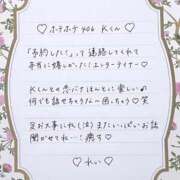 ♡ ホテホテ406 Kくん ♡
「予約した！」って連絡してくれて
本当に嬉しかった！エンターテイナー♡
Kくんとの恋バナほんとに楽しい♪
何でも話せちゃうな〜困っちゃう♡笑
足お大事にね(泣)またいっぱいお話
聞かせてねー！癒す♡
♡ れい ♡